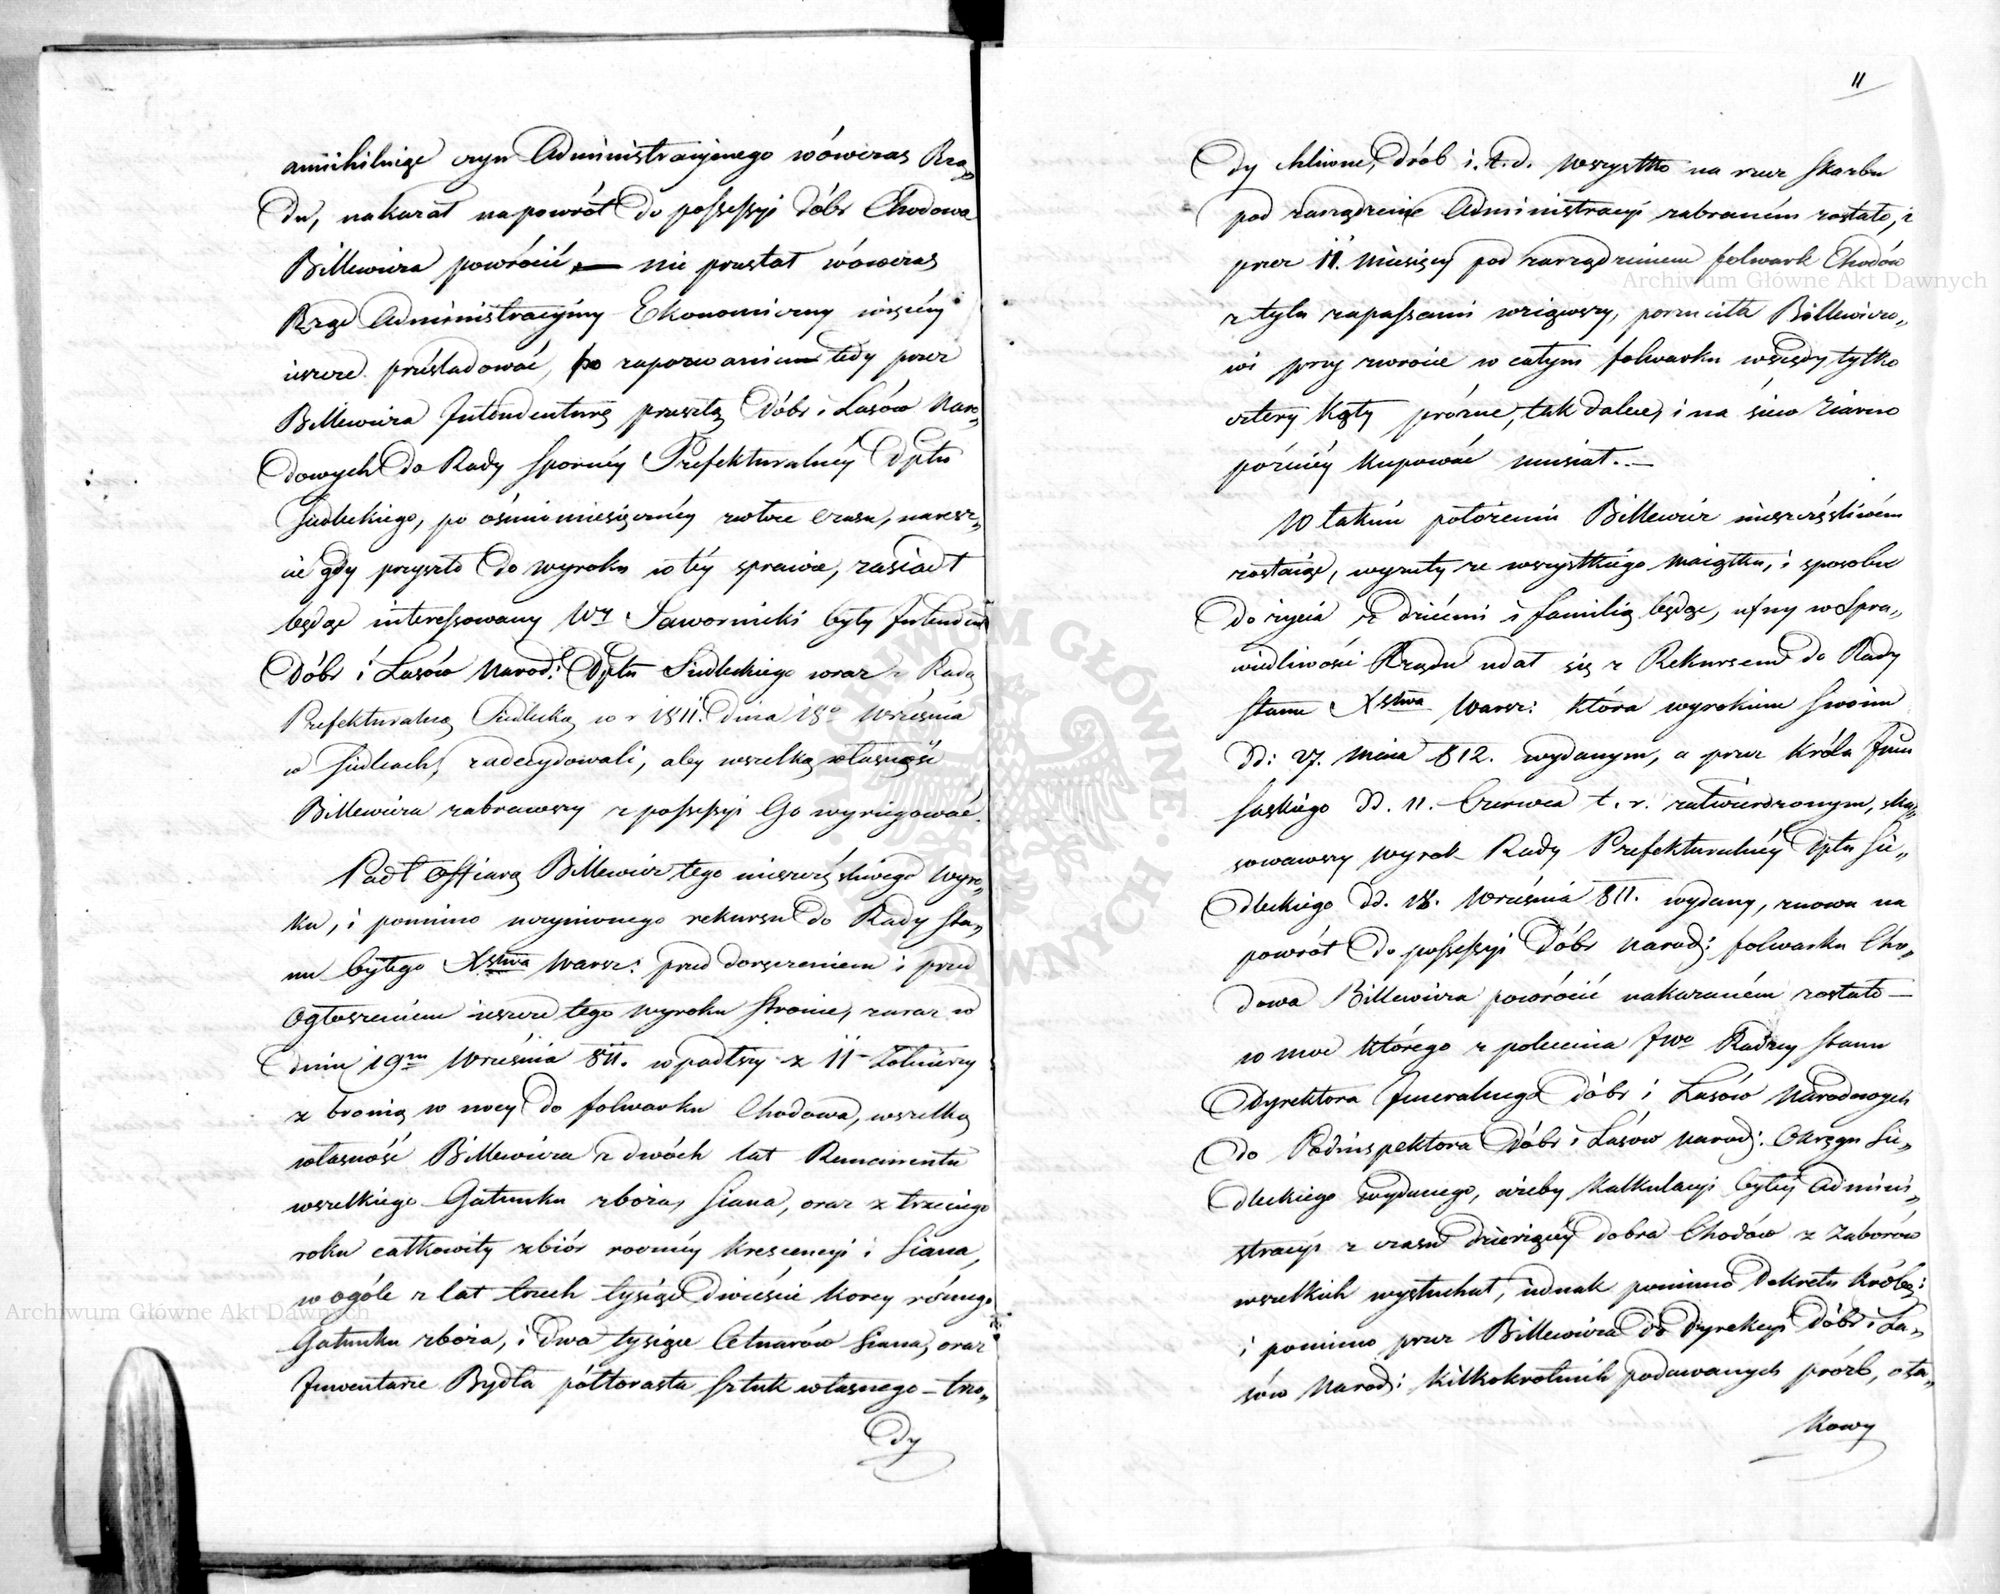 annihiluiąc czyn Administracyinego wówczas Rzą„
du, nakazał napowrót do possessyi dóbr Chodowa
Billewicza powrócić — nie przestał wówczas
Rząd Administracyiny Ekonomiczny więcéy
ieszcze prześladować, po zapozwaniu tedy przez
Billewicza Intendenturę przeszłą Dóbr i Lasów Naro„
dowych do Rady Sporney Prefekturalnéy Dptu
Siedleckiego, po ośmiomiesięcznéy zwłoce czasu, naresz„
cie gdy przyszło do wyroku w téy sprawie, zasiadł
będąc interessowany Wy Jawornicki były Intendent
Dóbr i Lasów Narod: Dptu Siedleckiego wraz z Radą
Prefekturalną Siedlecką w r 1811. dnia 18o Września
w Siedlcach, zadecydowali, aby wszelką własność
Billewicza zabrawszy z possessyi Go wyrugować.
Padł Offiarą Billewicz tego nieszczęśliwego Wyro„
ku, i pomimo uczynionego rekursu do Rady Sta„
nu byłego Xstwa Warsz: przed doręczeniem i przed
Ogłoszeniem ieszcze tego wyroku stronie, zaraz w
dniu 19m Września 811. wpadłszy z 11 Żołnierzy
z bronią w nocy do folwarku Chodowa, wszelką
własność Billewicza z dwóch lat Remanentu
wszelkiego Gatunku zboża, Siana, oraz z trzeciego
roku całkowity zbiór roczney krescencyi i Siana,
w ogóle z lat trzech tysiąc dwieście Korcy różnego
Gatunku zboża, i dwa tysiące Cetnarów Siana, oraz
Inwentarze Bydła półtorasta sztuk własnego – trzo„
dy
11
dy chlewne, drób i.t.d. wszystko na rzecz Skarbu
pod zarządzenie Administracyi zabraném zostało, i
przez 11. miesięcy pod zarządzeniem folwark Chodów
z tylu zapassami wziąwszy, porzuciła Billewiczo„
wi przy zwrocie w całym folwarku wszędy tylko
cztery kąty próżne, tak dalece, i na siew ziarno
poźniéy kupować musiał. —
W takim położeniu Billewicz nieszczęśliwém
zostaiąc, wyzuty ze wszystkiego maiątku, i sposobu
do życia z dziećmi i familią będąc, ufny w Spra„
wiedliwość Rządu udał się z Rekursem do Rady
Stanu Xstwa Warsz: która wyrokiem swoim
dd: 27. Maia 812. wydanym, a przez Króla Jmci
Saskiego dd. 11. Czerwca t. r. zatwierdzonym, ska„
sowawszy wyrok Rady Prefekturalnéy Dptu Sie„
dleckiego dd. 18. Września 811. wydany, znowu na
powrót do possessyi Dóbr Narod: folwarku Cho„
dowa Billewicza powrócić nakazaném zostało —
w moc którego z polecenia JWo Radzcy Stanu
Dyrektora Jeneralnego dóbr i Lasów Narodowych
do Podinspektora Dóbr i Lasów Narod: Okręgu Sie„
dleckiego wydanego, ażeby kalkulacyi byłéy Admini„
stracyi z czasu dzierżący dobra Chodów z Zaborów
wszelkich wysłuchał, iednak pomimo Dekretu Królew:
i pomimo przez Billewicza do Dyrekcyi Dóbr i La„
sów Narod: kilkokrotnych podawanych próźb, ota„
kowy
Archiwum Główne Akt Dawnych
Archiwum Główne Akt Dawnych
ARCHIWUM GŁÓWNE AKT DAWNYCH